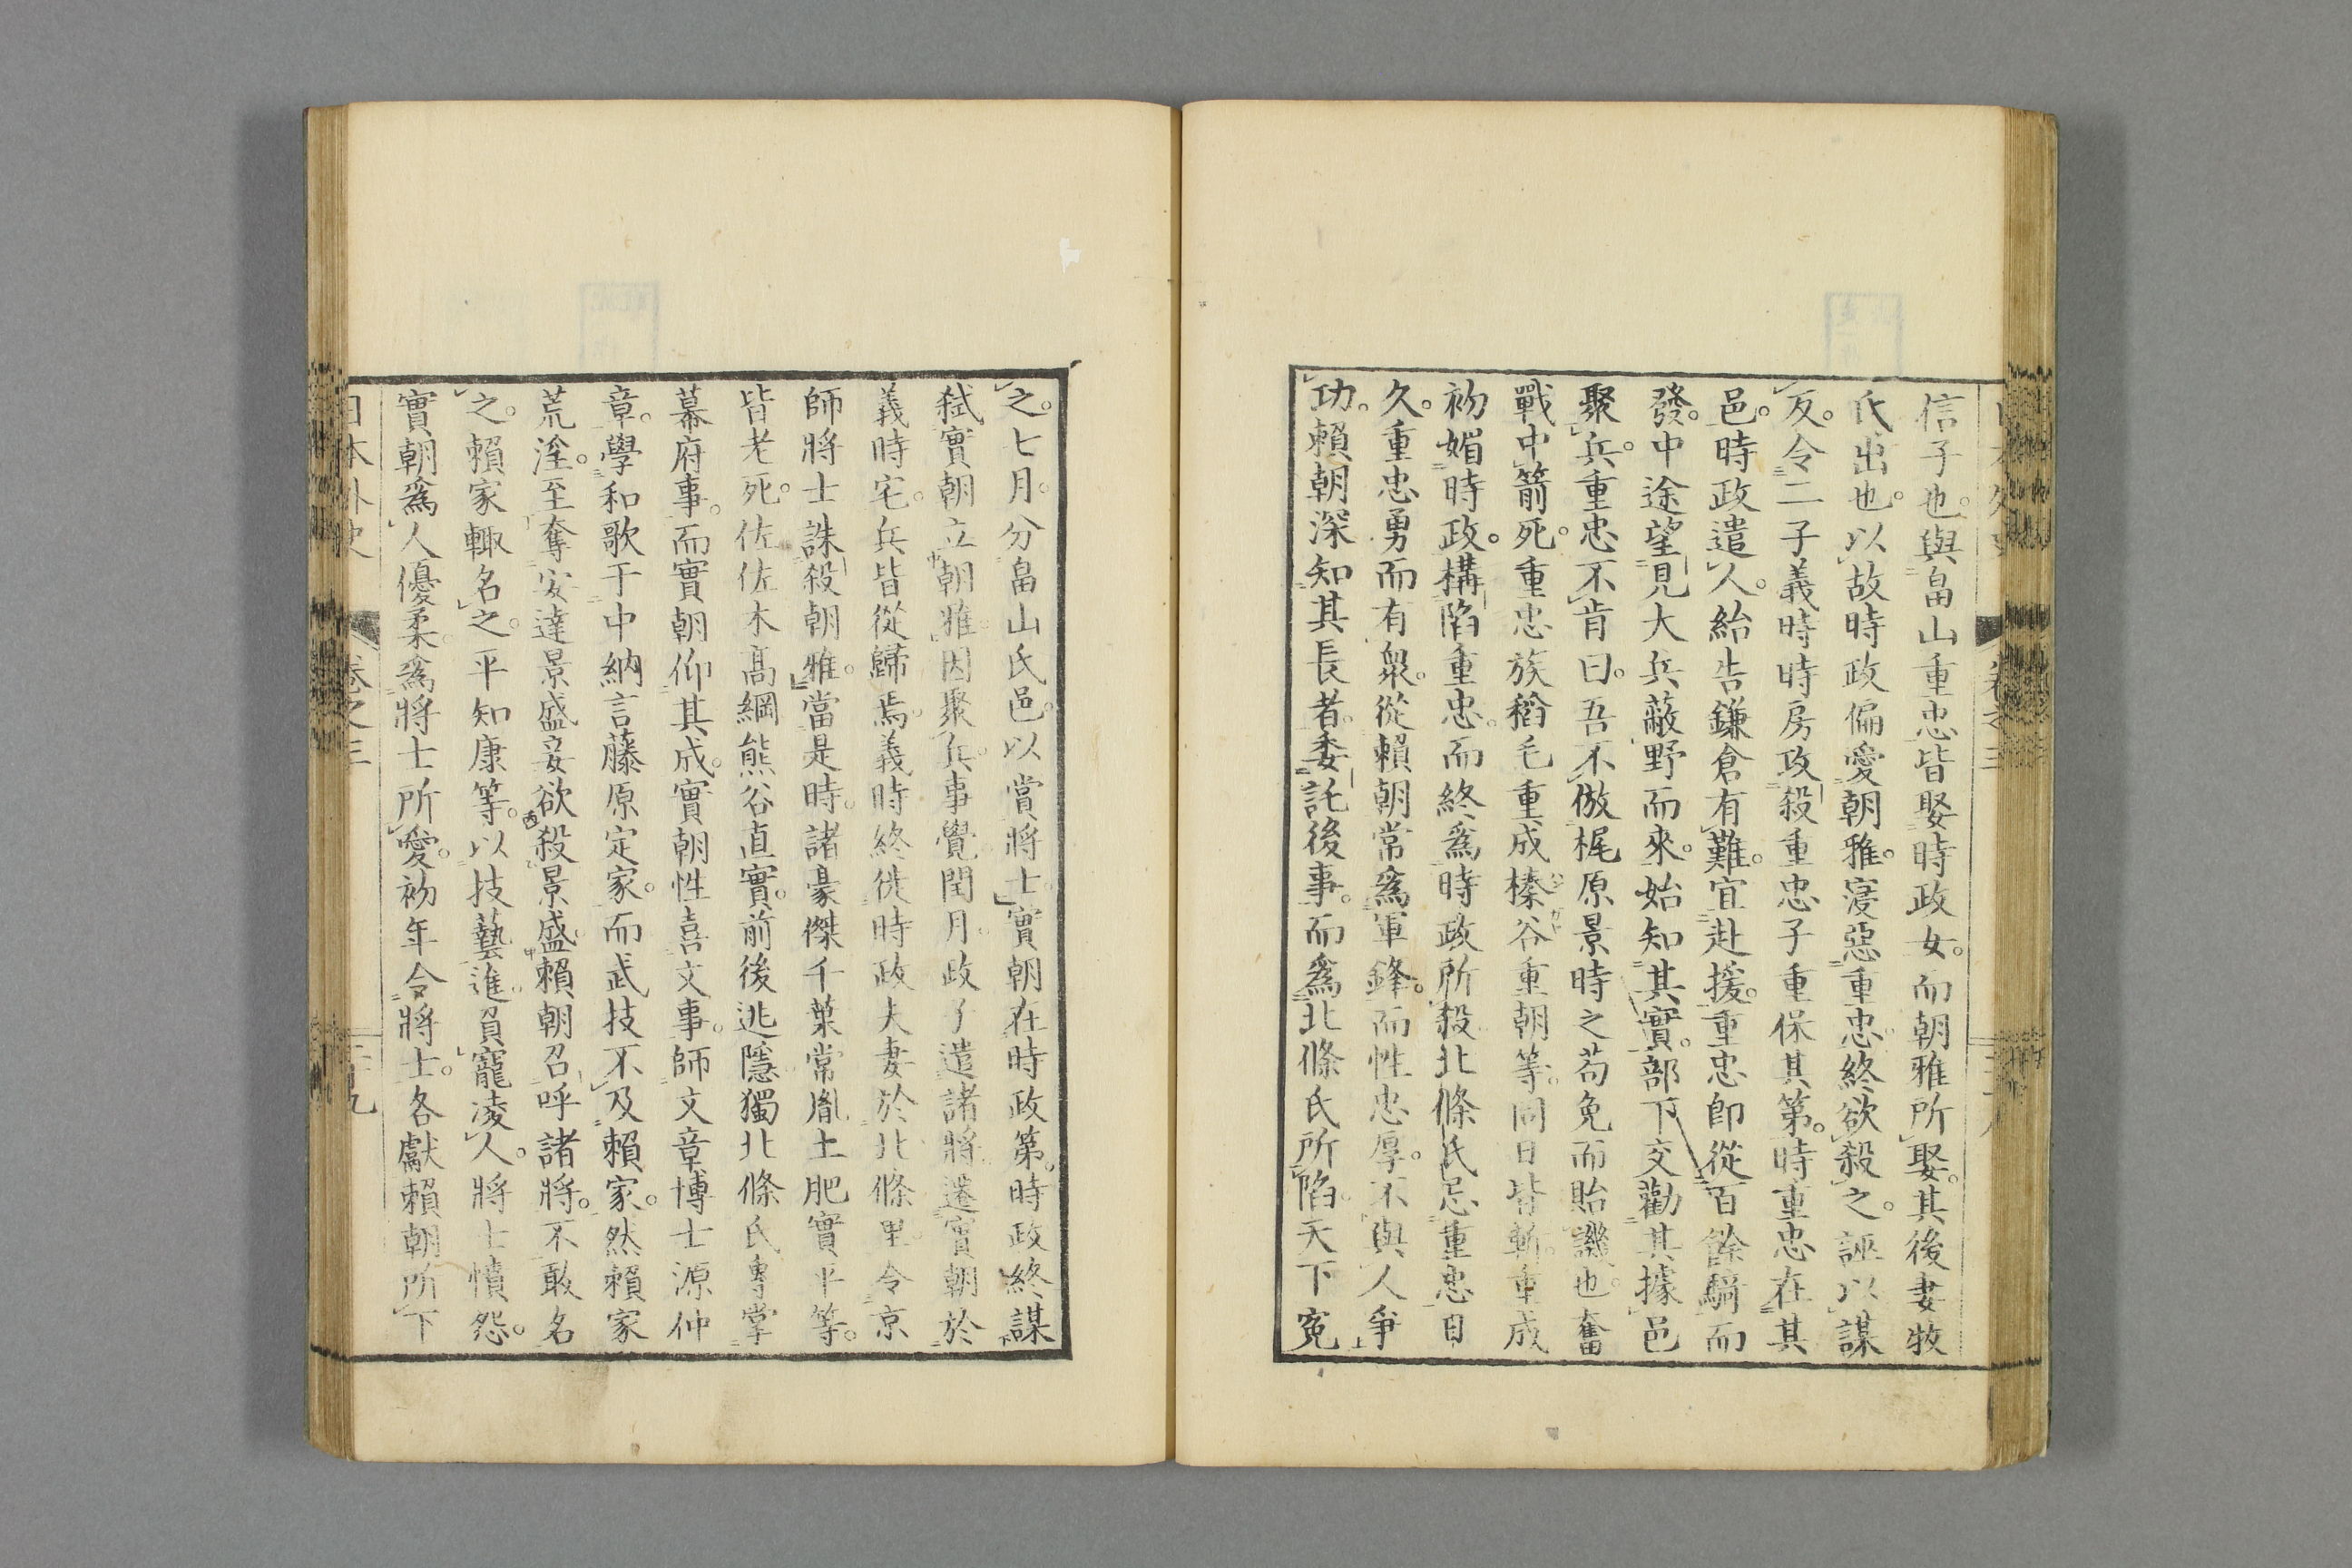 信子也。與畠山重忠皆娶時政女。而朝雅所娶。其後妻牧
氏出也。以故時政偏愛朝雅。寖惡重忠。終欲殺之。誣以謀
反。令二子義時時房攻殺重忠子重保其第。時重忠在其
邑。時政遣人。紿告鎌倉有難。宜赴援。重忠卽從百餘騎而
發。中途望見大兵蔽野而來。始知其實。部下交勸其據邑
聚兵。重忠不肯曰。吾不倣梶原景時之苟免而貽譏也。奮
戰中箭死。重忠族稻毛重成榛谷重朝等。同日皆斬。重成
初媚時政。構陷重忠。而終爲時政所殺。北條氏忌重忠日
久。重忠勇而有衆。從賴朝常爲軍鋒。而性忠厚。不與人爭
功。賴朝深知其長者。委託後事。而爲北條氏所陷。天下冤
之。七月。分畠山氏邑。以賞將士。實朝在時政第。時政終謀
弑實朝立朝雅。因聚兵。事覺。閏月。政子遣諸將。遷實朝於
義時宅。兵皆從歸焉。義時終徙時政夫妻於北條里。令京
師將士誅殺朝雅。當是時。諸豪傑千葉常胤土肥實平等。
皆老死。佐佐木髙綱熊谷直實。前後逃隱。獨北條氏專掌
幕府事。而實朝仰其成。實朝性喜文事。師文章博士源仲
章。學和歌于中納言藤原定家。而武技不及賴家。然賴家
荒淫。至奪安達景盛妾欲殺景盛。賴朝召呼諸將。不敢名
之。賴家輙名之。平知康等。以技藝進。負寵凌人。將士憤怨。
實朝爲人優柔。爲將士所愛。初年令將士。各獻賴朝所下
日本外史 卷之三